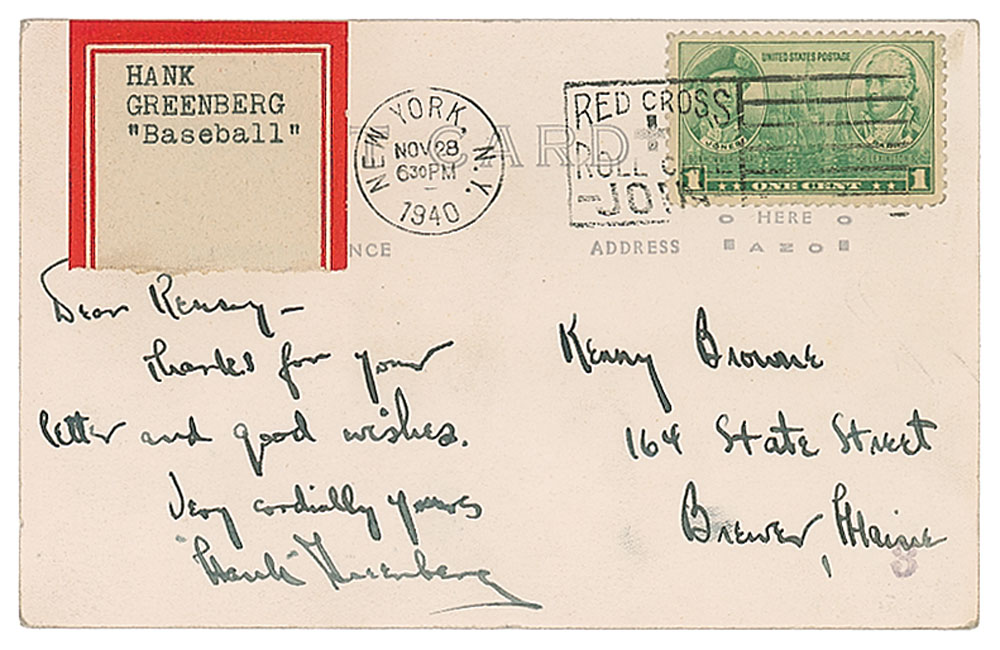 HANK
GREENBERG
"Baseball"
NEW YORK, N.Y.
NOV 28
630 PM
1940
CARD
RED CROSS
ROLL
JOIN
UNITED STATES POSTAGE
JONES
1 ONE CENT 1
NCE
ADDRESS
HERE
AZO
Dear Kenny –
Thanks for your
letter and good wishes.
Very cordially yours
"Hank" Greenberg
Kenny Browne
164 State Street
Brewer, Maine
3